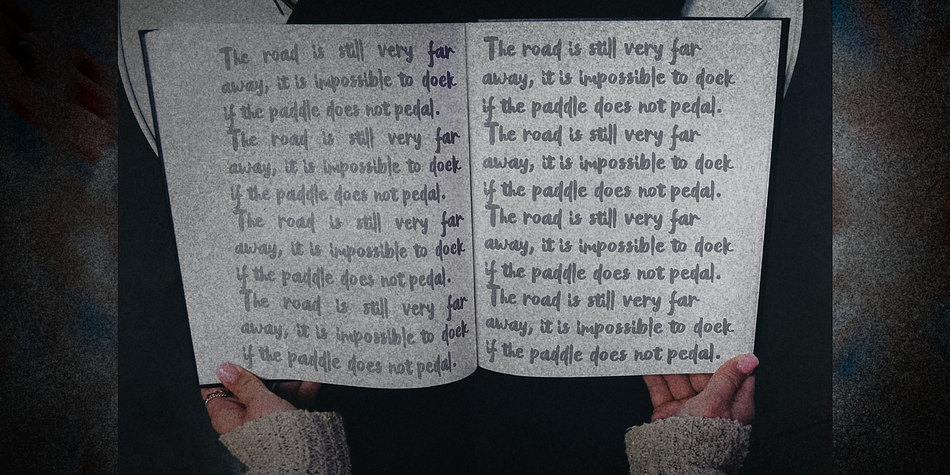 The road is still very far
away, it is impossible to doek
if the paddle does not pedal.
The road is still very far
away, it is impossible to doek
if the paddle does not pedal.
The road is still very far
away, it is impossible to doek
if the paddle does not pedal.
The road is still very far
away, it is impossible to doek
if the paddle does not pedal.
The road is still very far
away, it is impossible to doek
if the paddle does not pedal.
The road is still very far
away, it is impossible to doek
if the paddle does not pedal.
The road is still very far
away, it is impossible to doek
if the paddle does not pedal.
The road is still very far
away, it is impossible to doek
if the paddle does not pedal.